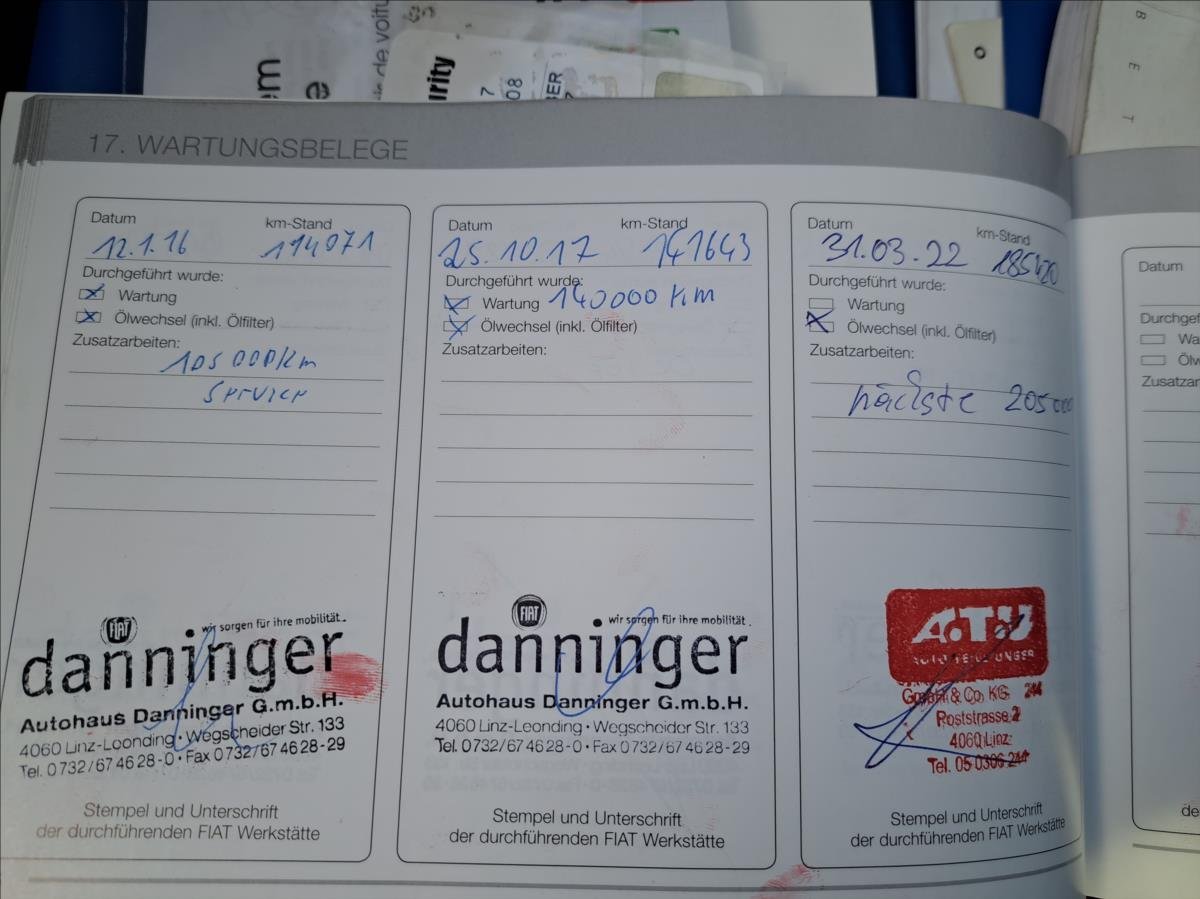 de voitu
em
e
urity
7
08
BER
B E T
17. WARTUNGSBELEGE
Datum km-Stand
12.1.16 114071
Durchgeführt wurde:
Wartung
Ölwechsel (inkl. Ölfilter)
Zusatzarbeiten:
105000Km
Service
FIAT
wir sorgen für ihre mobilität.
danninger
Autohaus Danninger G.m.b.H.
4060 Linz-Leonding • Wegscheider Str. 133
Tel. 0732/674628-0 • Fax 0732/674628-29
Stempel und Unterschrift
der durchführenden FIAT Werkstätte
Datum km-Stand
25.10.17 141643
Durchgeführt wurde:
Wartung 140000 Km
Ölwechsel (inkl. Ölfilter)
Zusatzarbeiten:
FIAT
wir sorgen für ihre mobilität.
danninger
Autohaus Danninger G.m.b.H.
4060 Linz-Leonding • Wegscheider Str. 133
Tel. 0732/674628-0 • Fax 0732/674628-29
Stempel und Unterschrift
der durchführenden FIAT Werkstätte
Datum km-Stand
31.03.22 185420
Durchgeführt wurde:
Wartung
Ölwechsel (inkl. Ölfilter)
Zusatzarbeiten:
nächste 205000
A.T.U
GmbH & Co. KG 244
Poststrasse 2
4060 Linz
Tel. 05 0306 244
Stempel und Unterschrift
der durchführenden FIAT Werkstätte
Datum
Durchgef
Wa
Ölw
Zusatzar
de